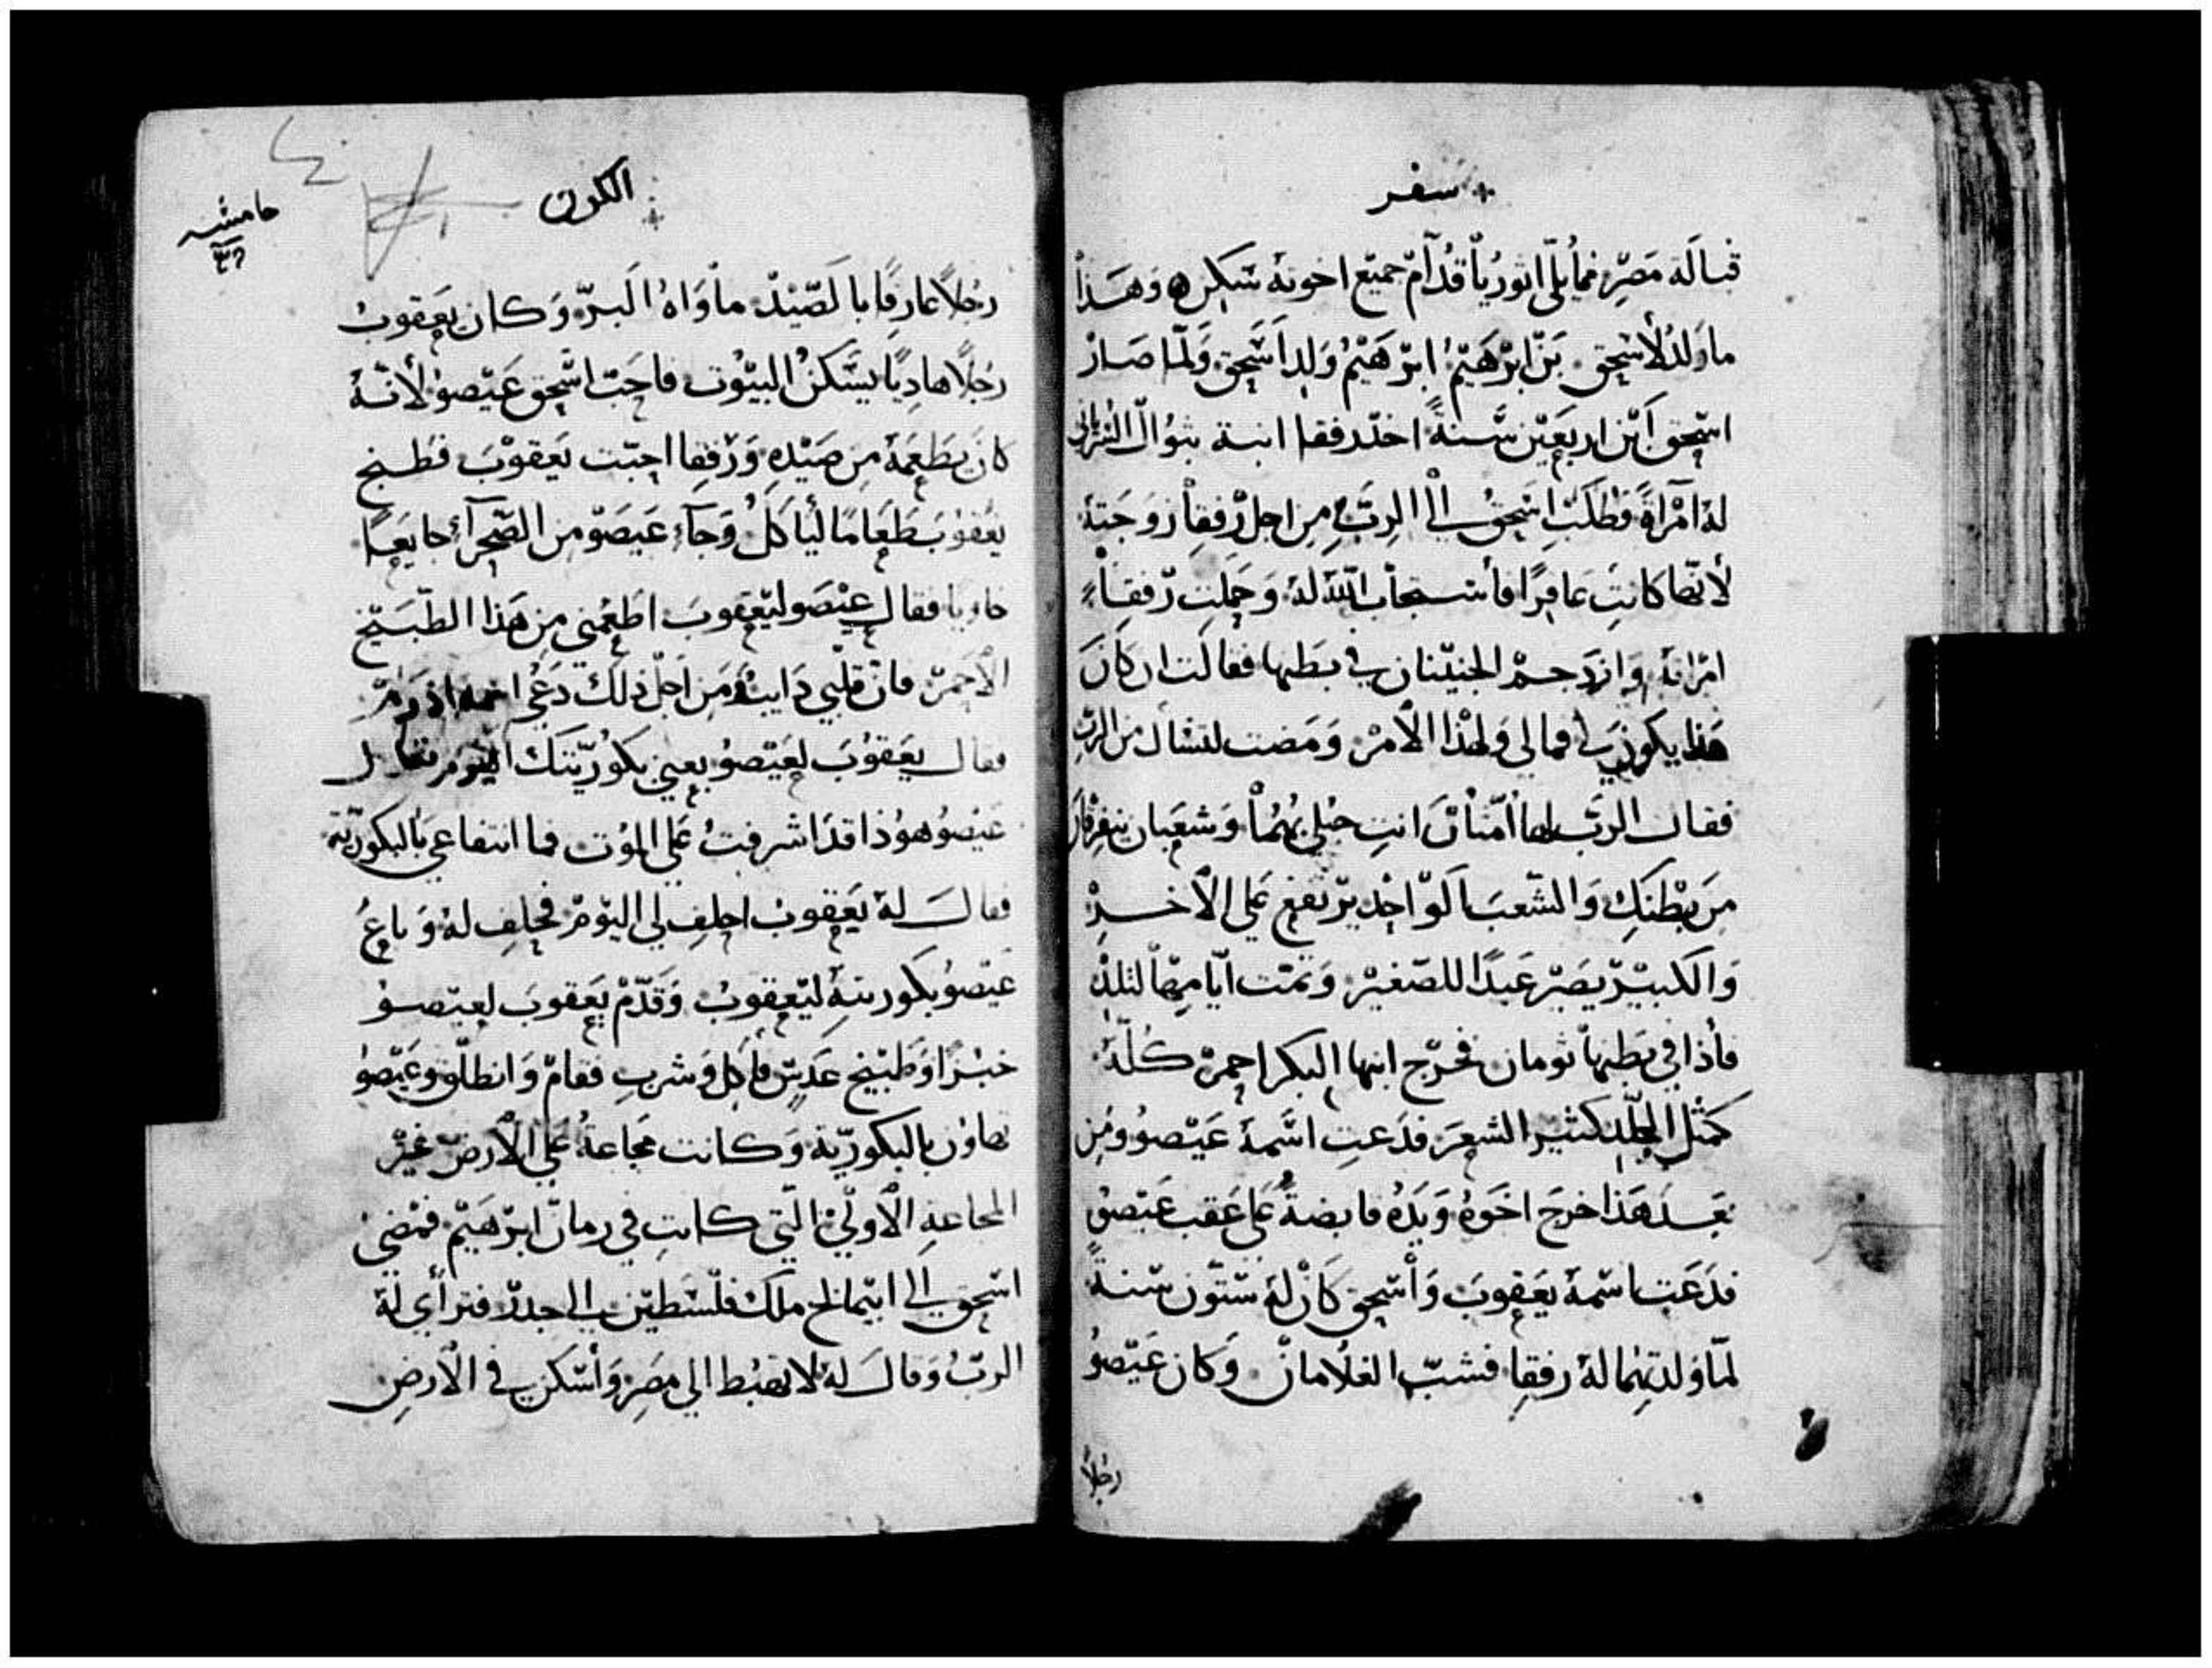 سفر
قبالة مصر فما يلى اثوريا قدام جميع اخوته سكن وهذا
ما ولد لاسحق بن ابرهيم ابرهيم ولد اسحق ولما صار
اسحق ابن اربعين سنة اخذ رفقا ابنة بثوال
له امرأة فطلب اسحق الى الرب من اجل رفقا زوجته
لأنها كانت عاقرا فأستجاب الله له وحملت رفقا
امراته وازدحم الجنينان في بطنها فقالت ان كان
هذا يكون لى فما لى ولهذا الأمر ومضت لتسال من الرب
فقال الرب لها أمتان انت حبلى بهما وشعبان يفترقان
من بطنك والشعب الواحد يرتفع على الأخر
والكبير يصير عبدا للصغير وتمت ايامها لتلد
فأذا في بطنها تومان فخرج ابنها البكر احمر كله
كمثل الجلد كثير الشعر فدعت اسمه عيصو ومن
بعد هذا خرج اخوه ويده قابضة على عقب عيصو
فدعت اسمه يعقوب وأسحق كان له ستون سنة
لما ولدتهما له رفقا فشب الغلامان وكان عيصو
رجلا
الكون
حامشه
رجلا عارفا بالصيد مأواه البر وكان يعقوب
رجلا هاديا يسكن البيوت فاحب اسحق عيصو لأنه
كان يطعمه من صيده ورفقا احبت يعقوب فطبخ
يعقوب طعاما ليأكل وجآء عيصو من الصحرآء جايعا
خاويا فقال عيصو ليعقوب اطعمني من هذا الطبيخ
الأحمر فان قلبي ذايب ومن اجل ذلك دعي اسمه ادوم
فقال يعقوب لعيصو بعني بكوريتك اليوم فقال
عيصو هوذا قد اشرفت على الموت فما انتفاعي بالبكورية
فقال له يعقوب احلف لي اليوم فحلف له وباع
عيصو بكوريته ليعقوب وقدم يعقوب لعيصو
خبزا وطبيخ عدس فأكل وشرب فقام وانطلق وعيصو
تهاون بالبكورية وكانت مجاعة على الأرض غير
المجاعة الأولى التي كانت في زمان ابرهيم فمضى
اسحق الى ابيمالخ ملك فلسطين الى جدر فترأى له
الرب وقال له لا تهبط الى مصر وأسكن في الأرض